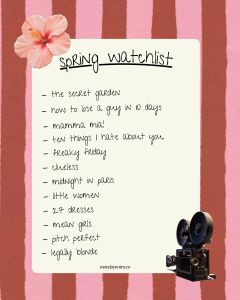 spring watchlist
- the secret garden
- how to lose a guy in 10 days
- mamma mia!
- ten things I hate about you
- freaky friday
- clueless
- midnight in paris
- little women
- 27 dresses
- mean girls
- pitch perfect
- legally blonde